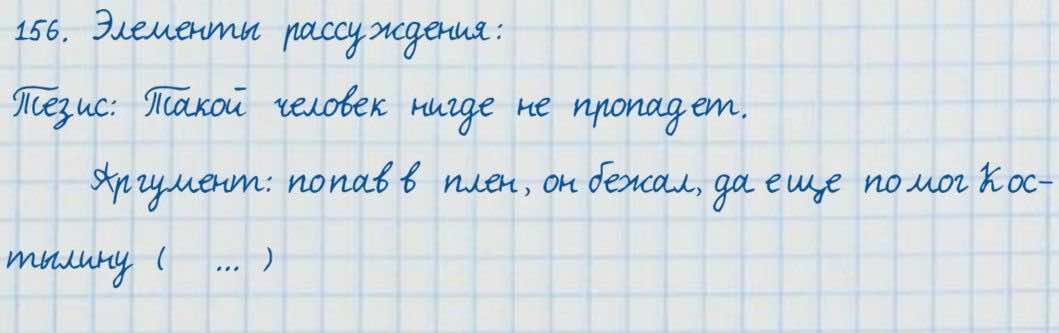 156. Элементы рассуждения:
Тезис: Такой человек нигде не пропадет.
Аргумент: попав в плен, он бежал, да еще помог Кос-
тылину ( ... )